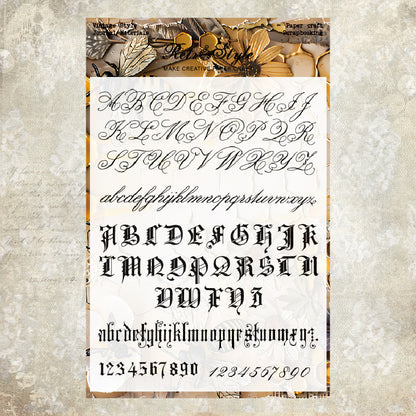 Vintage Style Paper craft
Journal Materials Scrapbooking
Retro Style
MAKE CREATIVE PAPER CRAFT
A B C D E F G H I J
K L M N O P Q R
S T U V W X Y Z
abcdefghijklmnopqrstuvwxyz
A B C D E F G H J K
L M N O P Q R S T U
V W F Y Z
abcdefghijklmnopqrestuvwxyz
1234567890 1234567890